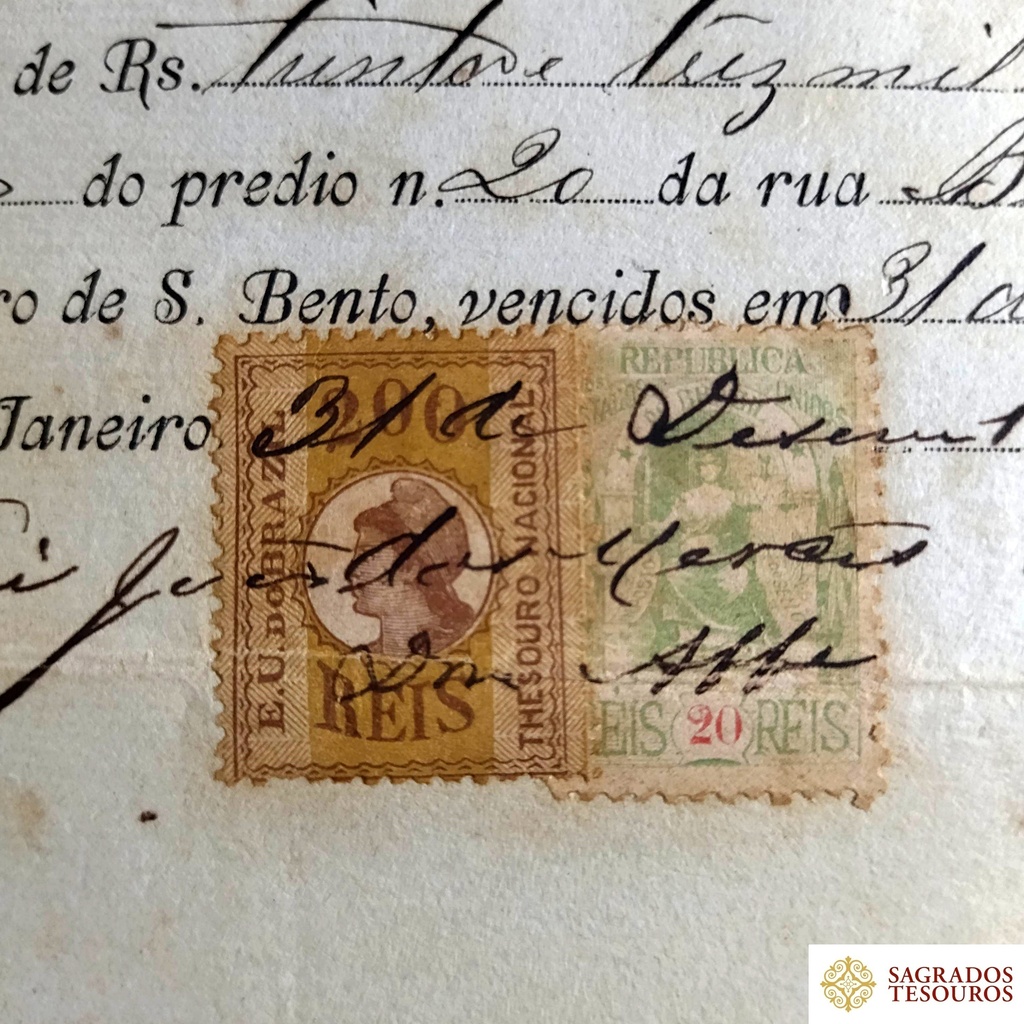 de Rs. Trinta e trez mil
do predio n. 20 da rua
ro de S. Bento, vencidos em 31 d
Janeiro 31 de Dezem
João de Moraes
200
E.U. DO BRAZIL
THESOURO NACIONAL
REIS
REPUBLICA
ESTADOS UNIDOS
REIS 20 REIS
SAGRADOS
TESOUROS